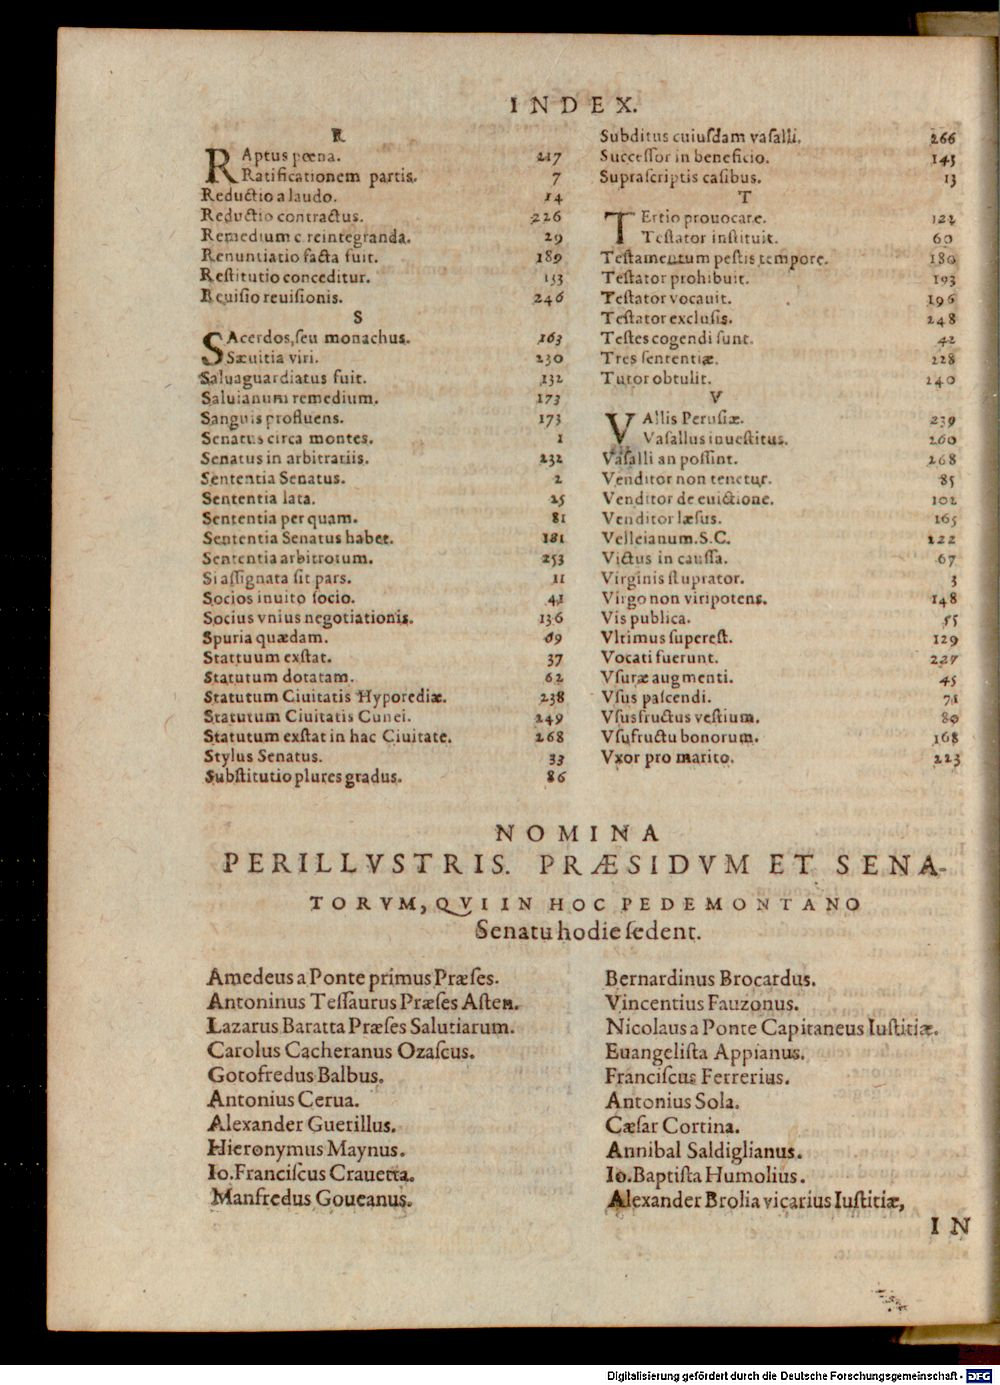 INDEX.
R
RAptus pœna. 217
Ratificationem partis. 7
Reductio a laudo. 14
Reductio contractus. 226
Remedium c. reintegranda. 29
Renuntiatio facta fuit. 189
Restitutio conceditur. 153
Reuisio reuisionis. 246
S
SAcerdos, seu monachus. 163
Sæuitia viri. 230
Saluaguardiatus fuit. 132
Saluianum remedium. 173
Sanguis profluens. 173
Senatus circa montes. 1
Senatus in arbitratiis. 232
Sententia Senatus. 2
Sententia lata. 25
Sententia per quam. 81
Sententia Senatus habet. 181
Sententia arbitrorum. 253
Si assignata sit pars. 11
Socios inuito socio. 41
Socius vnius negotiationis. 136
Spuria quædam. 69
Stattuum exstat. 37
Statutum dotatam. 62
Statutum Ciuitatis Hyporediæ. 238
Statutum Ciuitatis Cunei. 249
Statutum exstat in hac Ciuitate. 268
Stylus Senatus. 33
Substitutio plures gradus. 86
Subditus cuiusdam vasalli. 266
Successor in beneficio. 145
Suprascriptis casibus. 13
T
TErtio prouocare. 122
Testator instituit. 60
Testamentum pestis tempore. 180
Testator prohibuit. 193
Testator vocauit. 196
Testator exclusis. 248
Testes cogendi sunt. 42
Tres sententiæ. 228
Tutor obtulit. 240
V
VAllis Perusiæ. 239
Vasallus inuestitus. 260
Vasalli an possint. 268
Venditor non tenetur. 85
Venditor de euictione. 102
Venditor læsus. 165
Velleianum. S.C. 222
Victus in caussa. 67
Virginis stuprator. 3
Virgo non viripotens. 148
Vis publica. 55
Vltimus superest. 129
Vocati fuerunt. 227
Vsuræ augmenti. 45
Vsus pascendi. 71
Vsusfructus vestium. 80
Vsufructu bonorum. 168
Vxor pro marito. 223
NOMINA
PERILLVSTRIS. PRÆSIDVM ET SENA-
TORVM, QVI IN HOC PEDEMONTANO
Senatu hodie sedent.
Amedeus a Ponte primus Præses.
Antoninus Tessaurus Præses Asten.
Lazarus Baratta Præses Salutiarum.
Carolus Cacheranus Ozascus.
Gotofredus Balbus.
Antonius Cerua.
Alexander Guerillus.
Hieronymus Maynus.
Io. Franciscus Crauetta.
Manfredus Goueanus.
Bernardinus Brocardus.
Vincentius Fauzonus.
Nicolaus a Ponte Capitaneus Iustitiæ.
Euangelista Appianus.
Franciscus Ferrerius.
Antonius Sola.
Cæsar Cortina.
Annibal Saldiglianus.
Io. Baptista Humolius.
Alexander Brolia vicarius Iustitiæ,
IN
Digitalisierung gefördert durch die Deutsche Forschungsgemeinschaft - DFG